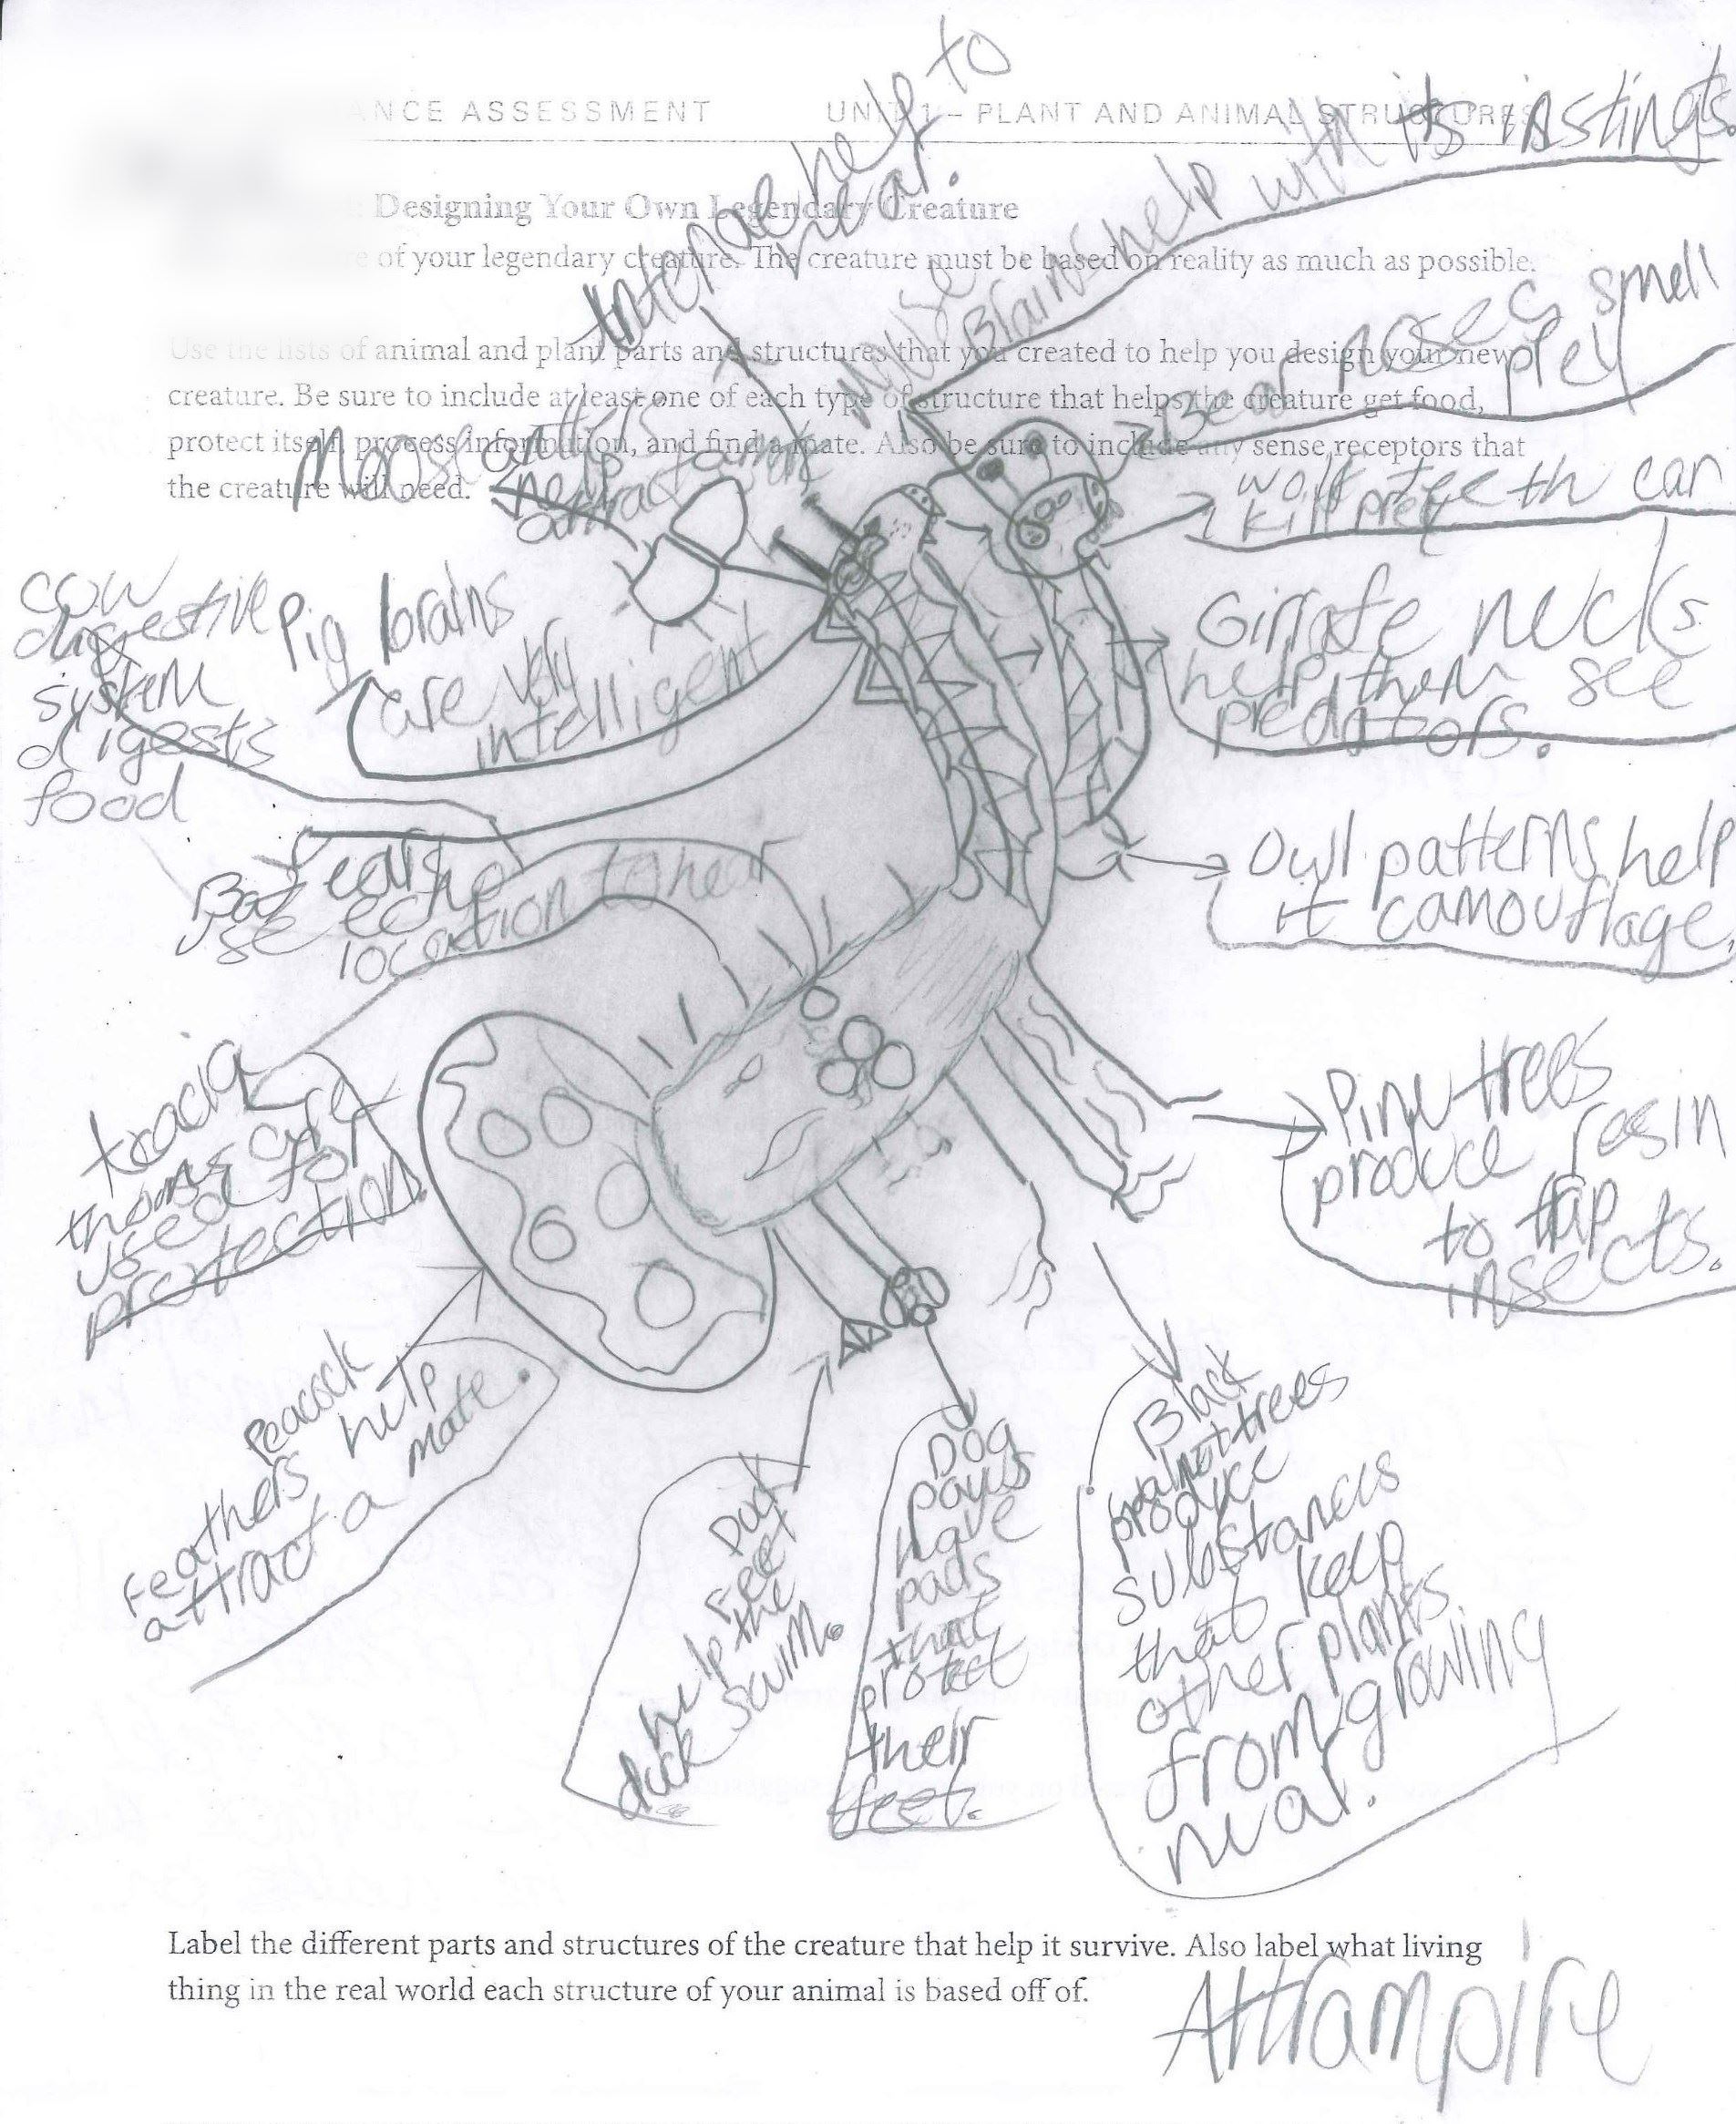 ANCE ASSESSMENT
UNIT 1 – PLANT AND ANIMAL STRUCTURES
: Designing Your Own Legendary Creature
of your legendary creature. The creature must be based on reality as much as possible.
Use the lists of animal and plant parts and structures that you created to help you design your new
creature. Be sure to include at least one of each type of structure that helps the creature get food,
protect itself, process information, and find a mate. Also be sure to include any sense receptors that
the creature will need.
help to
hear.
Mouse
Brains help with its
Bear noses smell
prey
Moose antlers
help
attract a mate
wolf teeth can
kill prey
cow
digestive
system
digests
food
Pig brains
are very
intelligent
Girrafe necks
help them see
predators.
Bat ears
use echo
location to hear
Owl patterns help
it camouflage.
thorns are
used for
protestion.
Pine trees
produce resin
to trap
insects.
Peacock
Feathers help
attract a mate.
Duck
Feet
help the
duck swim.
Dog
paws
have
pads
that
protect
their
feet.
Black
walnot trees
produce
substances
that keep
other plants
from growing
near.
Label the different parts and structures of the creature that help it survive. Also label what living
thing in the real world each structure of your animal is based off of.
Attrampire